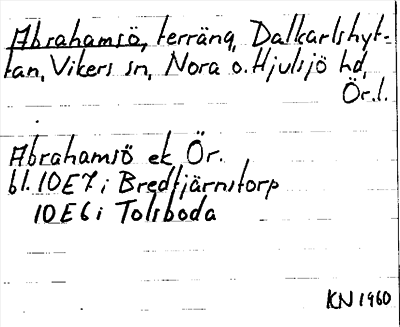 Abrahamsö, terräng, Dalkarlshyt-
tan, Vikers sn, Nora o. Hjulsjö hd,
Ör.l.
Abrahamsö ek Ör.
bl. 10E7i Bredtjärnstorp
10E6i Tolsboda
KN 1960